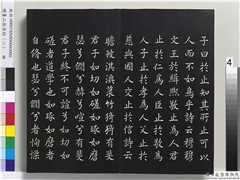 子曰於止知其所止可以
人而不如鳥乎詩云穆穆
文王於緝熙敬止為人君
止於仁為人臣止於敬為
人子止於孝為人父止於
慈與國人交止於信詩云
瞻彼淇澳菉竹猗猗有斐
君子如切如磋如琢如磨
瑟兮僩兮赫兮喧兮有斐
君子終不可諠兮如切如
磋者道學也如琢如磨者
自脩也瑟兮僩兮者恂慄
4